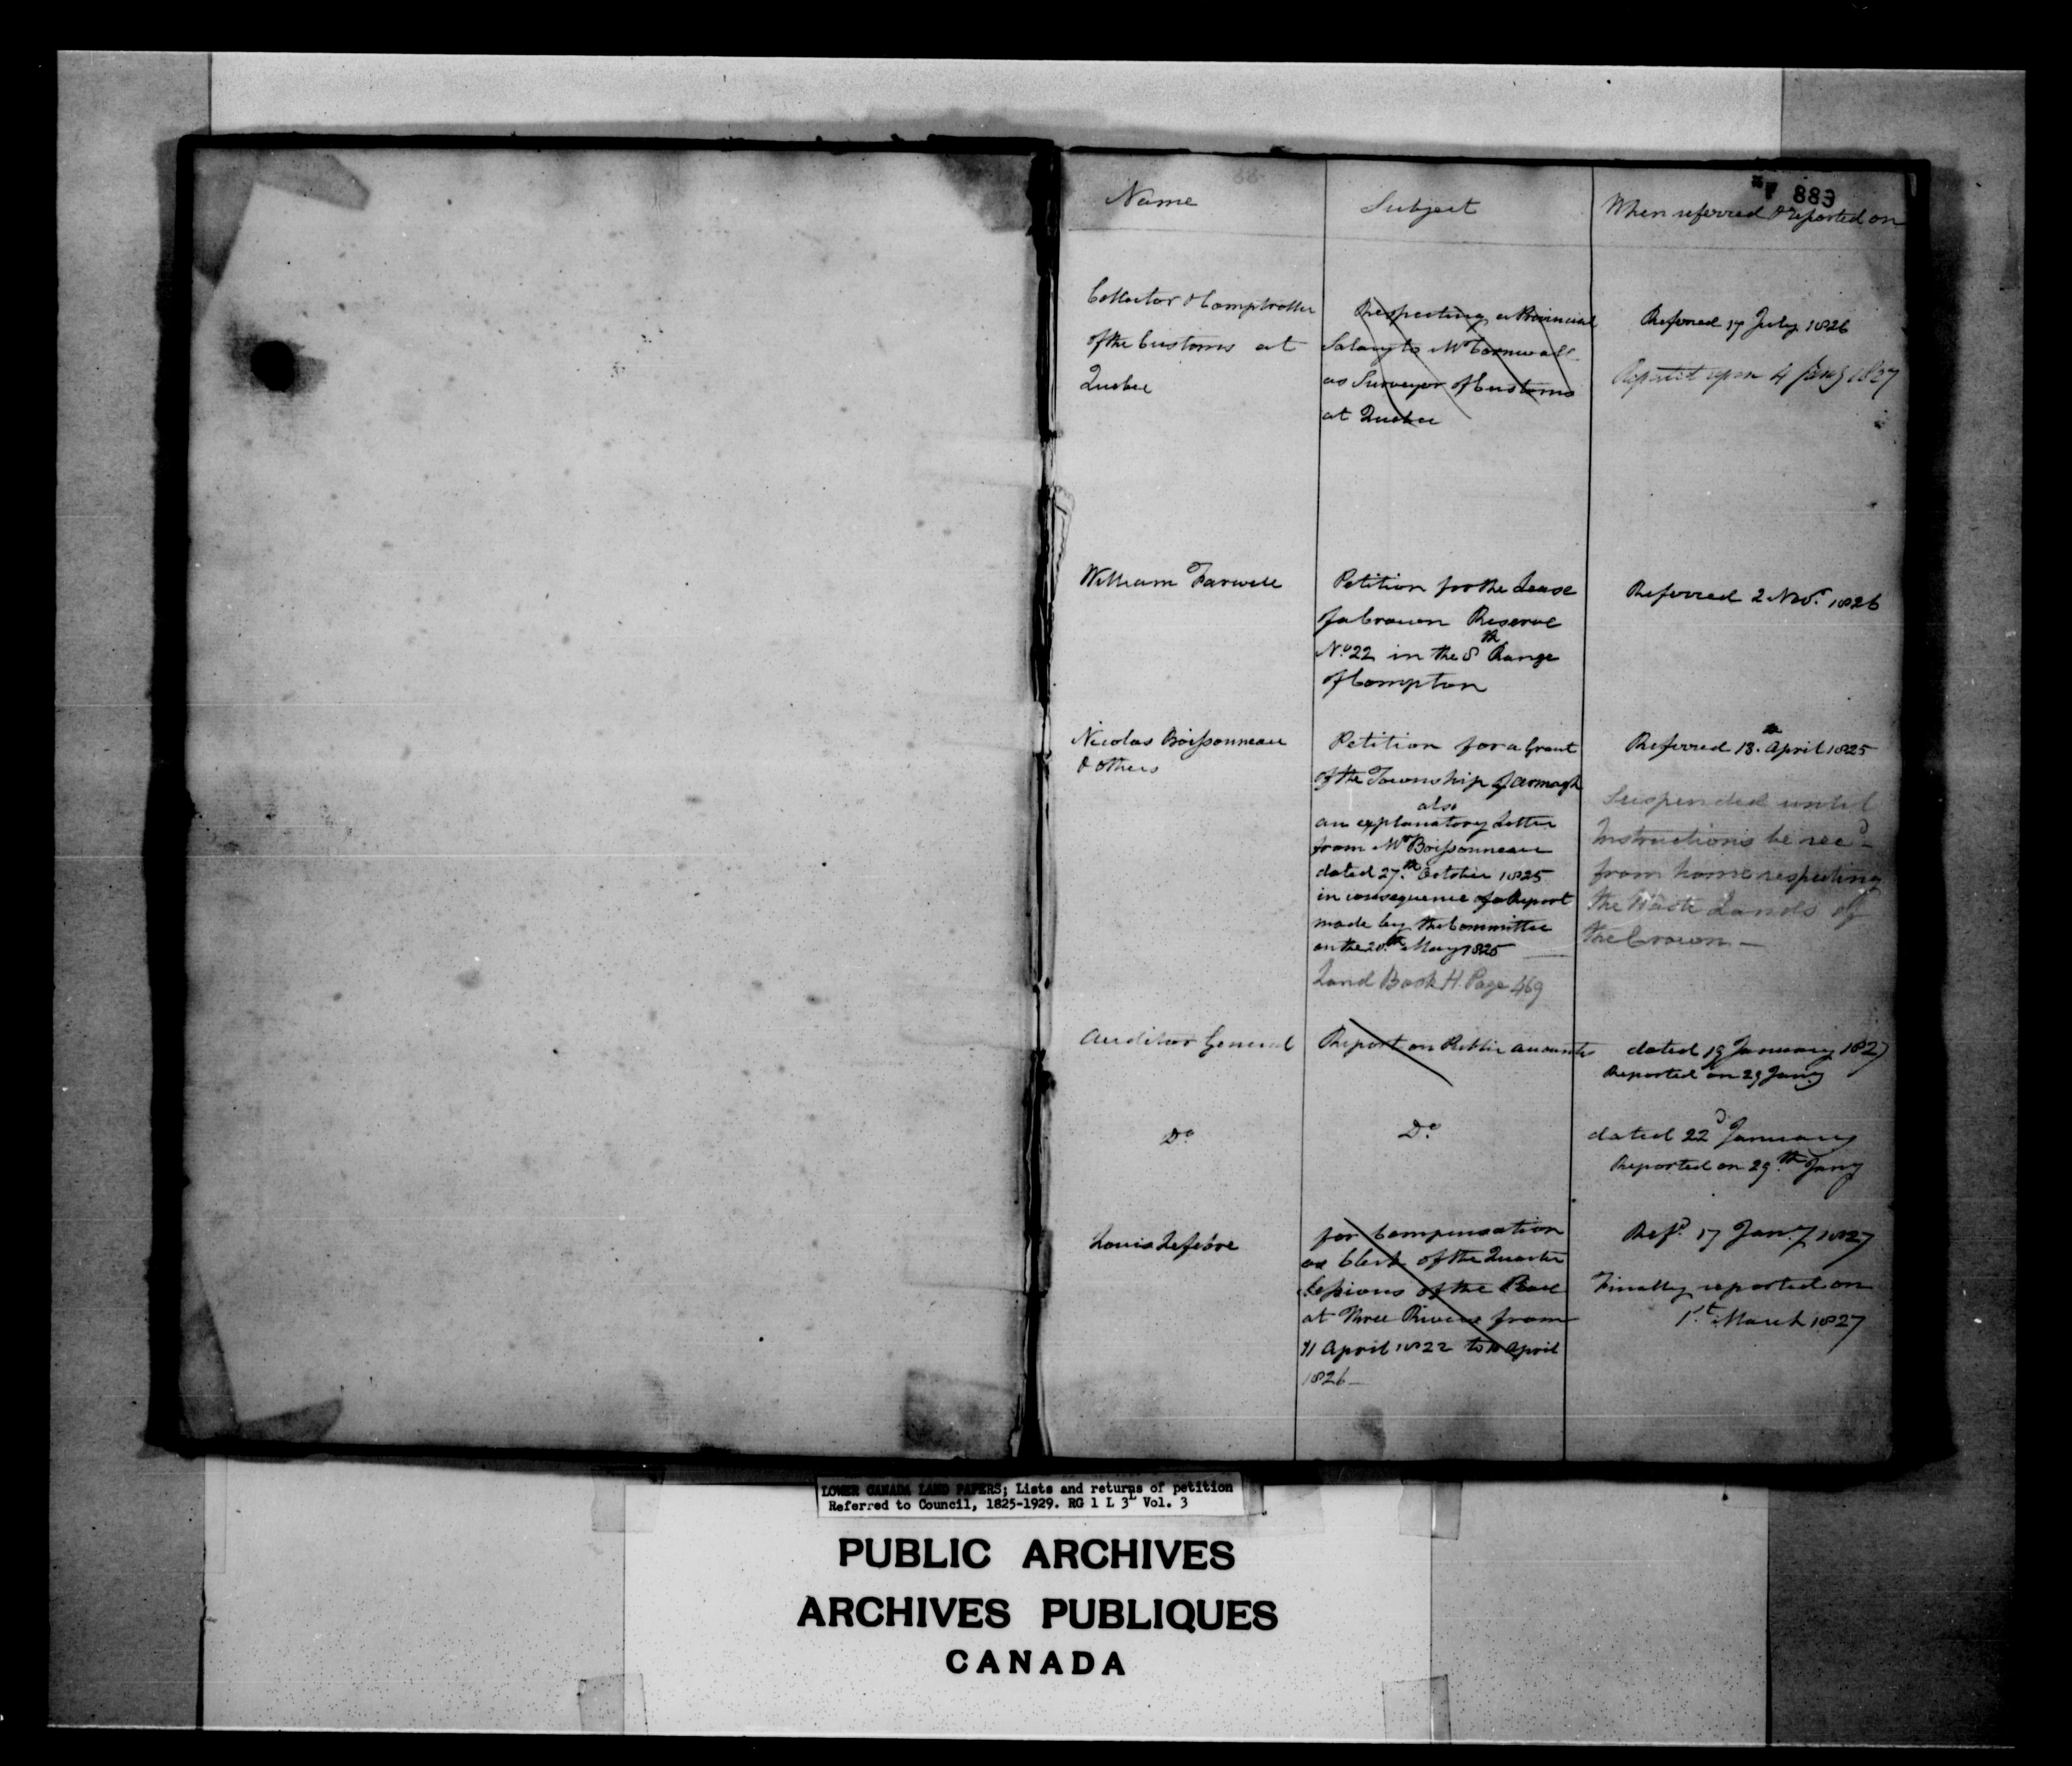 883
Name
Subject
When referred & reported on
Collector & Comptroller
of the Customs at
Quebec
Respecting a Provincial
Salary to Mr Cornwall
as Surveyor of Customs
at Quebec
Referred 17 July 1826
Reported upon 4 Jany 1827
William Farwell
Petition for the Lease
of a Crown Reserve
No. 22 in the 8th Range
of Compton
Referred 2 Novr. 1826
Nicolas Boissonneau
& others
Petition for a Grant
of the Township of Armagh
also
an explanatory Letter
from Mr Boissonneau
dated 27th October 1825
in consequence of a Report
made by the Committee
on the 20th May 1825
Land Book H. Page 469
Referred 18th April 1825
Suspended until
Instructions be recd
from home respecting
the Waste Lands of
the Crown —
Auditor General
Report on Public accounts
dated 19 January 1827
Reported on 29 Jany
Do
Do
dated 22d January
Reported on 29th Jany
Louis Lefebvre
for Compensation
as Clerk of the Quarter
Sessions of the Peace
at Three Rivers from
11 April 1822 to 10 April
1826 —
Refd 17 Jany 1827
Finally reported on
1st March 1827
LOWER CANADA LAND PAPERS; Lists and returns of petition
Referred to Council, 1825-1929. RG 1 L 3L Vol. 3
PUBLIC ARCHIVES
ARCHIVES PUBLIQUES
CANADA